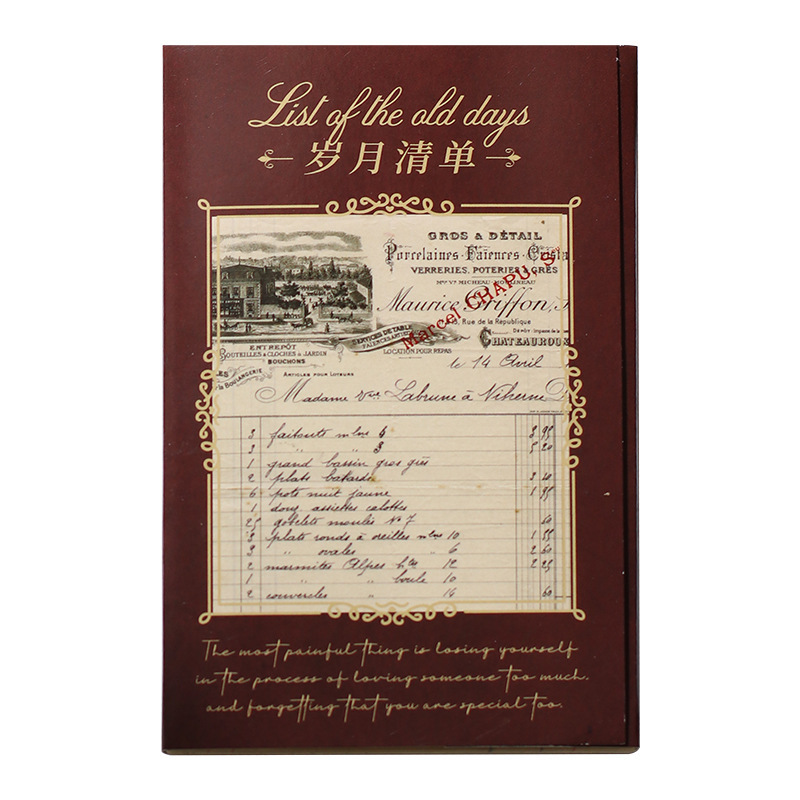 List of the old days
岁月清单
GROS & DÉTAIL
Porcelaines - Faïences - Crista
VERRERIES, POTERIES, GRÈS
Mon Vve MICHEAU-MOREREAU
Maurice Griffon,
Marcel CHAPU,
Rue de la République
CHATEAUROUX
SERVICES DE TABLE
LOCATION POUR REPAS
ENTREPÔT
BOUTEILLES & CLOCHES DE JARDIN
BOUCHONS
la BOULANGERIE
ARTICLES POUR
le 14 Avril
Madame Vve Labrune à Niherne
3 faitouts mlns 4 3 95
3 " " 3 5 20
1 grand bassin gros grès
2 plats batards 3 40
6 pots nuit jaune 1 95
1 douz assiettes calottes
25 gobelets moulés No 7 60
3 plats ronds à oreilles mlns 10 1 55
3 " ovales " 6 2 60
2 marmites Alpes htes 12 2 25
1 " " boule 10
2 couvercles " 14 60
The most painful thing is losing yourself
in the process of loving someone too much,
and forgetting that you are special too.